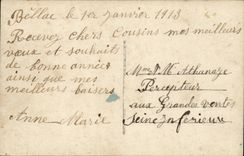 Bellac le 1er janvier 1918
Recevez chers Cousins mes meilleurs
vœux et souhaits
de bonne année
ainsi que mes
meilleurs baisers
Anne Marie
Mme Athanaze
Percepteur
aux Grandes Ventes
Seine Inférieure